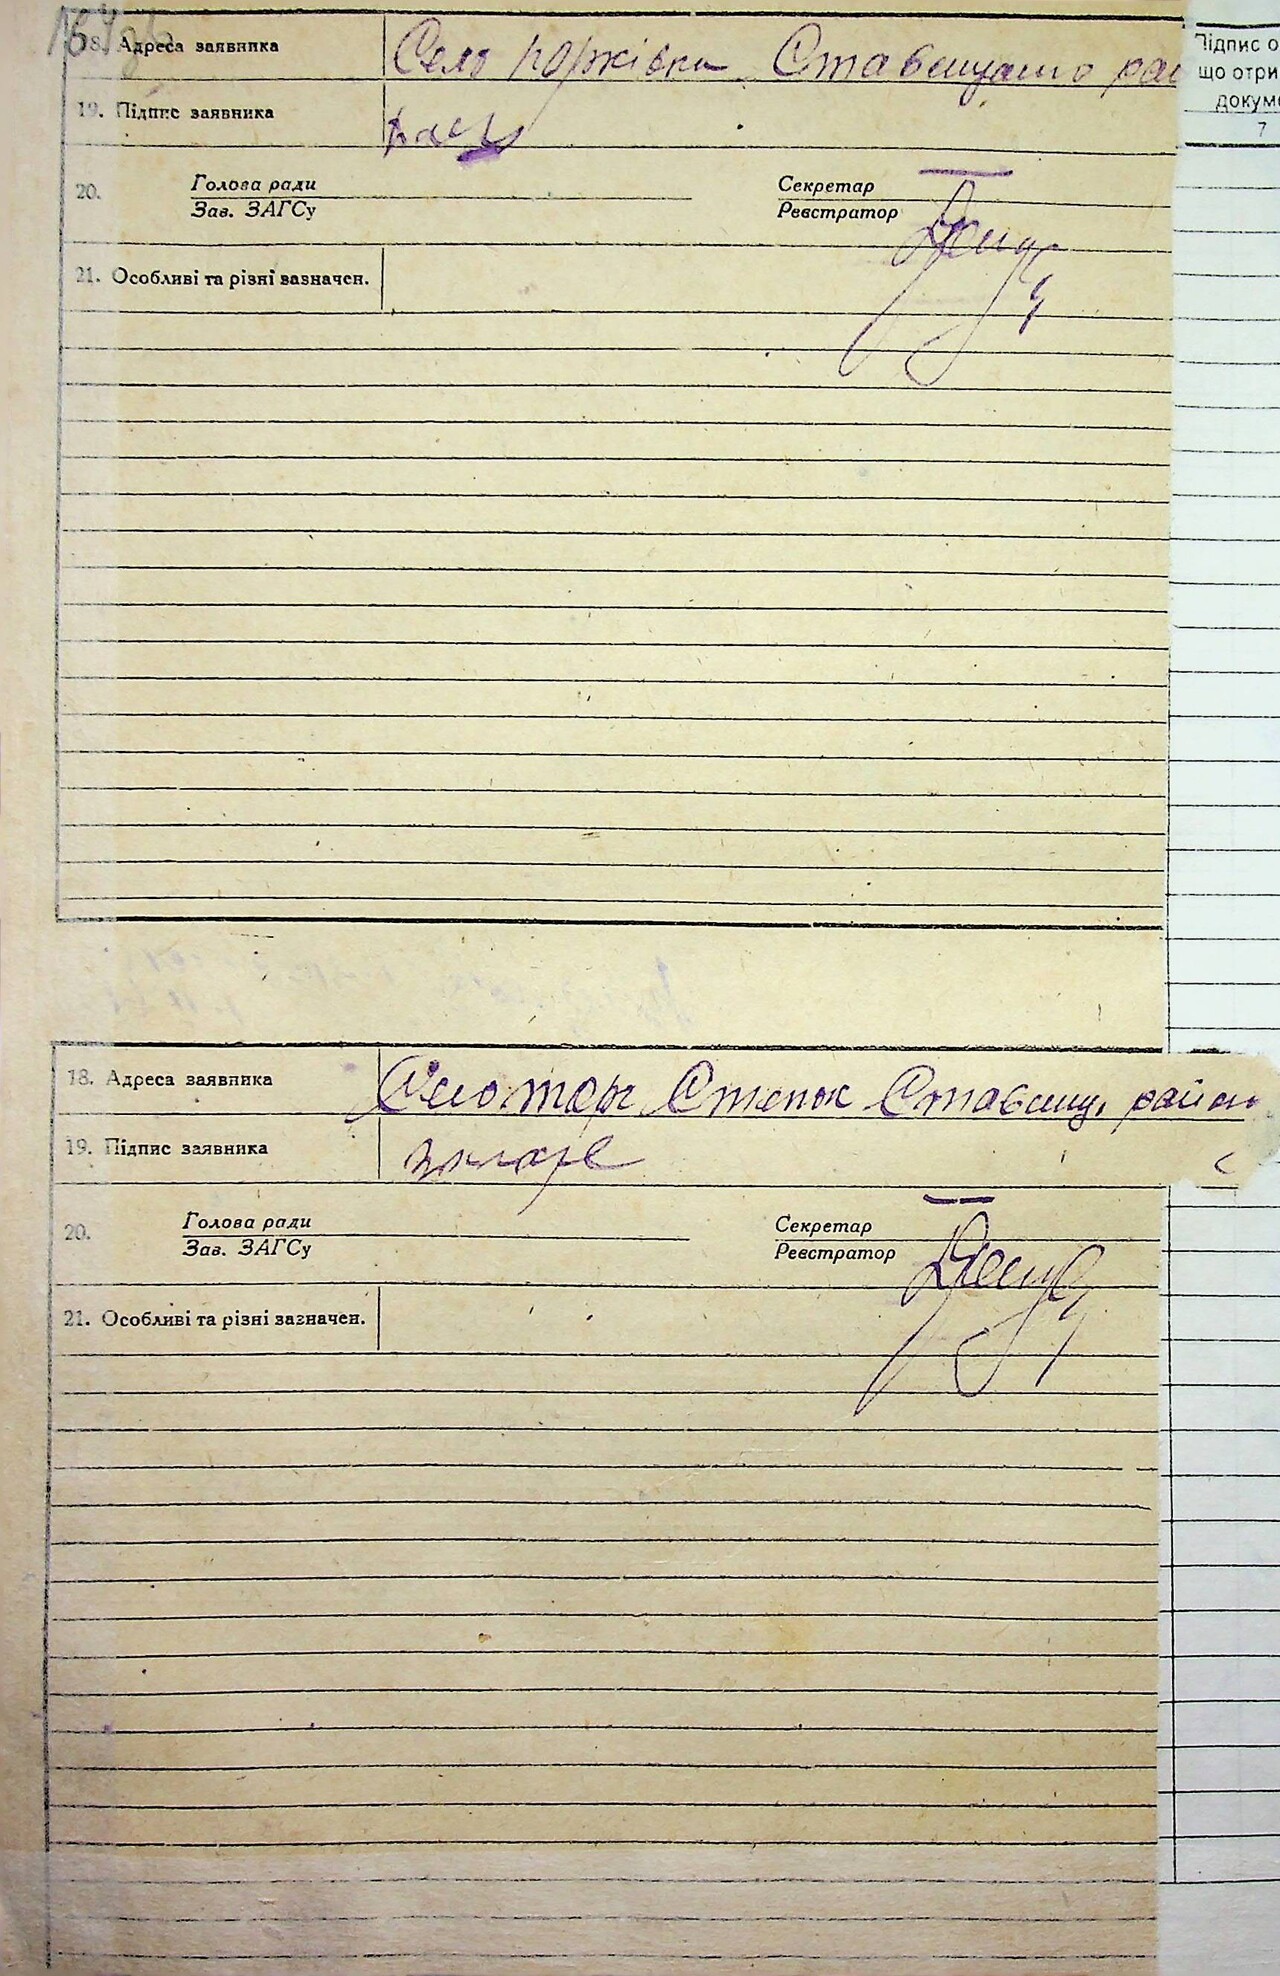 18. Адреса заявника Село Торжівка Ставищанс рай
19. Підпис заявника
20. Голова ради Секретар
Зав. ЗАГСу Реєстратор
21. Особливі та різні зазначен.
Підпис о
що отри
докуме
7
18. Адреса заявника Село Степок Ставищ. район
19. Підпис заявника
20. Голова ради Секретар
Зав. ЗАГСу Реєстратор
21. Особливі та різні зазначен.